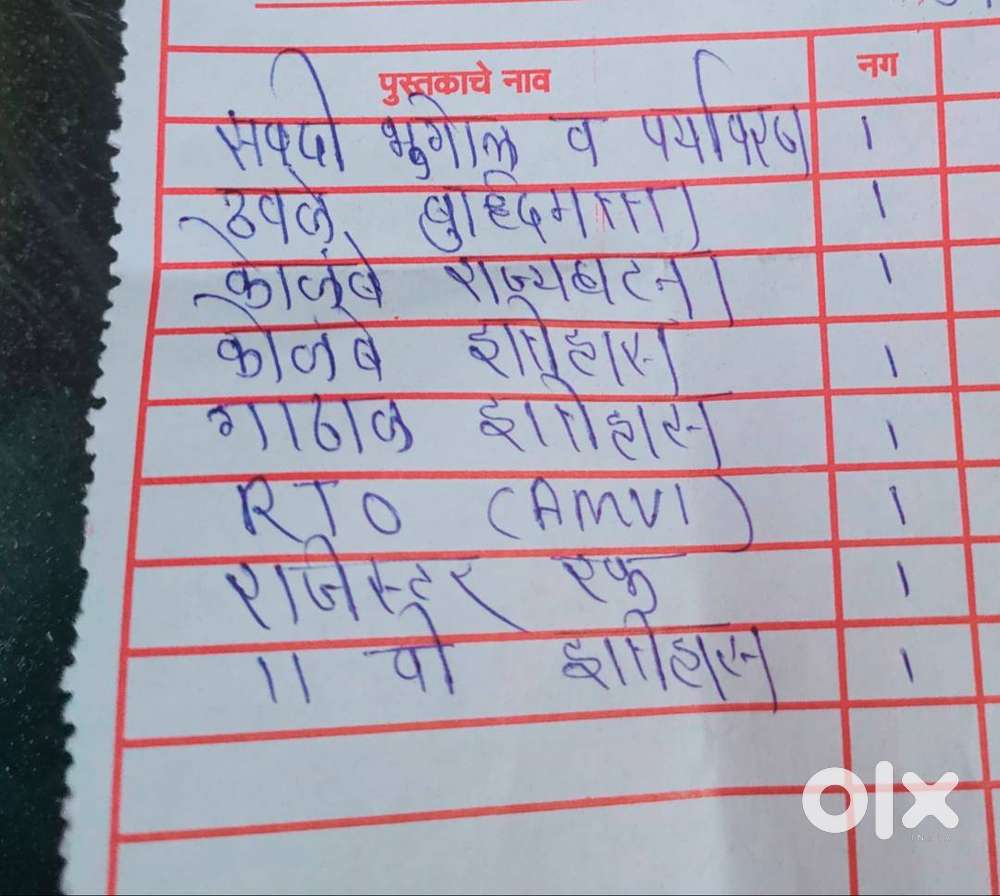 पुस्तकाचे नाव नग
सवदी भुगोल व पर्यावरण 1
ढवळे बुध्दिमत्ता 1
कोळंबे राज्यघटना 1
कोळंबे इतिहास 1
गाठाळ इतिहास 1
RTO (AMVI) 1
रजिस्टर एक 1
11 वी इतिहास 1
olx
INDIA